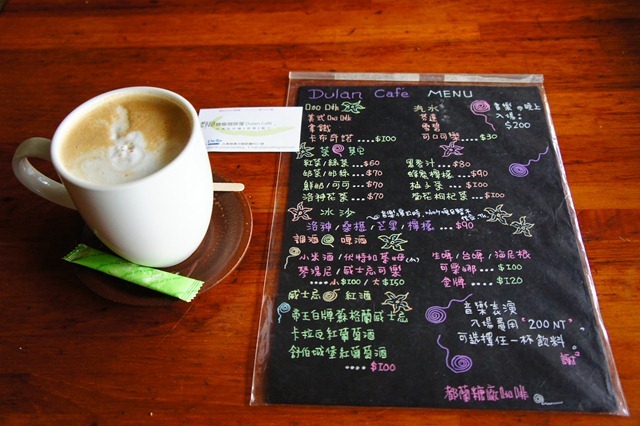 Dulan Café
Dulan Café MENU
美式
拿鐵
卡布奇諾 ....$100
汽水
芬達
雪碧
可口可樂 ....$30
音樂 晚上
入場:
$200
茶
紅茶/綠茶 ....$60
奶茶/奶綠 ....$70
鮮奶/可可 ....$70
洛神花茶 ....$70
黑麥汁 ....$80
蜂蜜檸檬 ...$90
柚子茶 ....$100
菊花枸杞茶 ....$100
冰沙
洛神/桑椹/芒果/檸檬 ....$90
調酒 啤酒
小米酒/伏特加萊姆
琴湯尼/威士忌可樂
....小$100/大$150
生啤/台啤/海尼根
可樂娜 .... $100
金牌 .... $120
威士忌 紅酒
帝王白牌蘇格蘭威士忌
卡拉瓦紅葡萄酒
舒伯城堡紅葡萄酒
.... $100
音樂表演
入場費用 "200 NT"
可選擇任一杯飲料
謝謝
都蘭糖廠